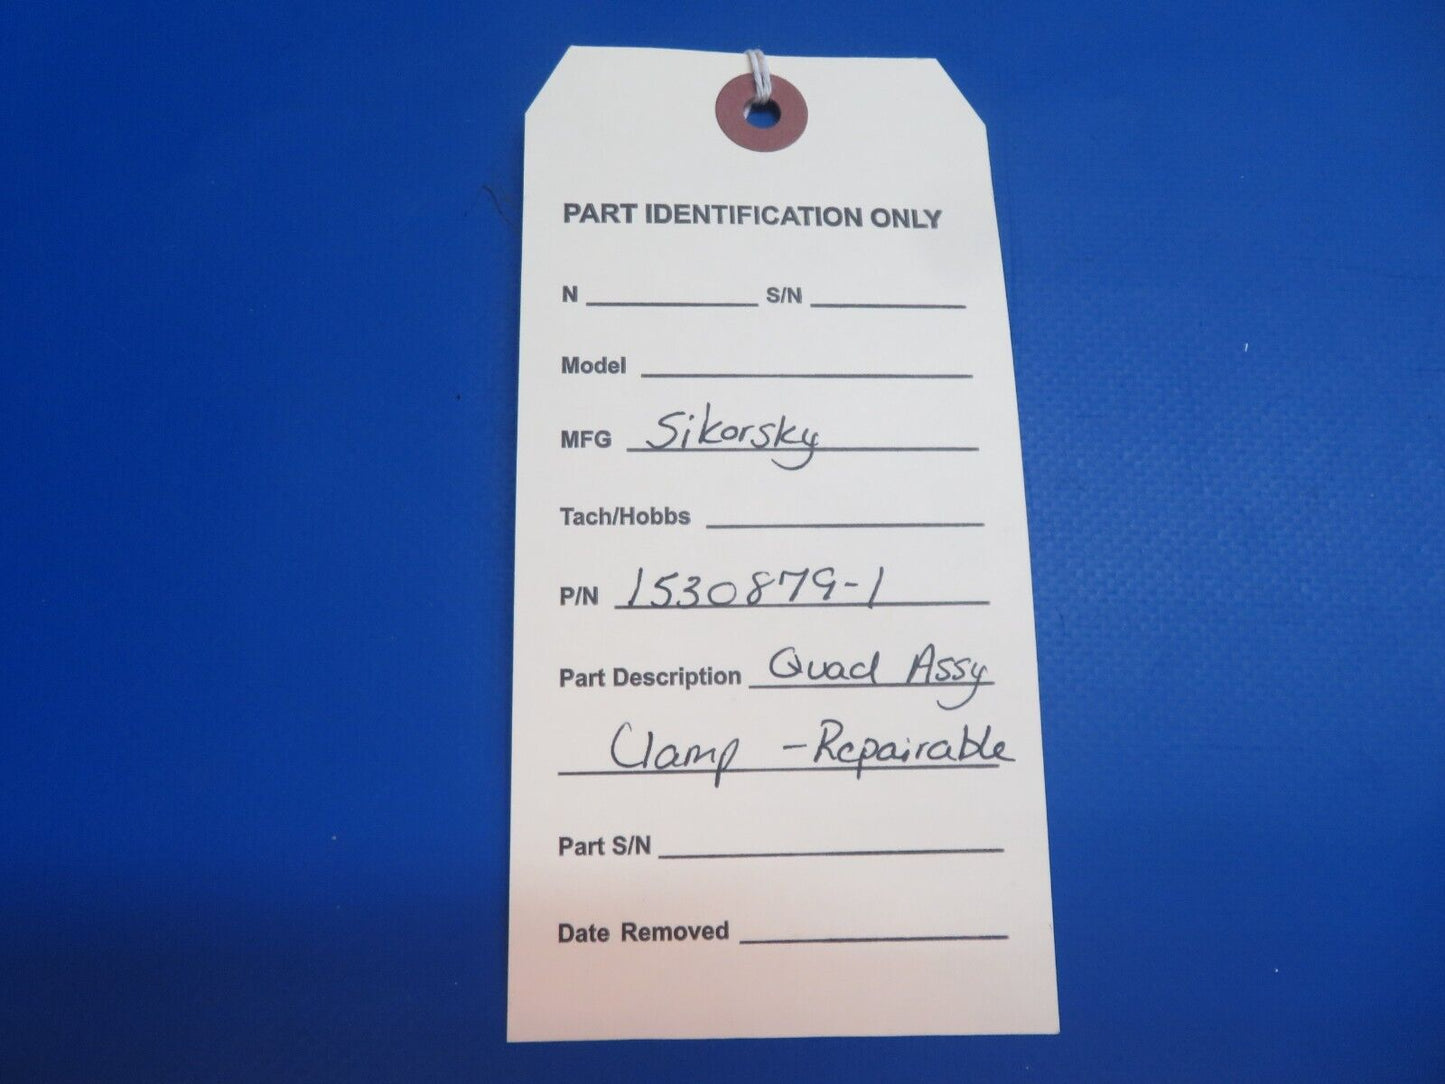 PART IDENTIFICATION ONLY
N S/N
Model
MFG Sikorsky
Tach/Hobbs
P/N 1530879-1
Part Description Quad Assy
Clamp - Repairable
Part S/N
Date Removed